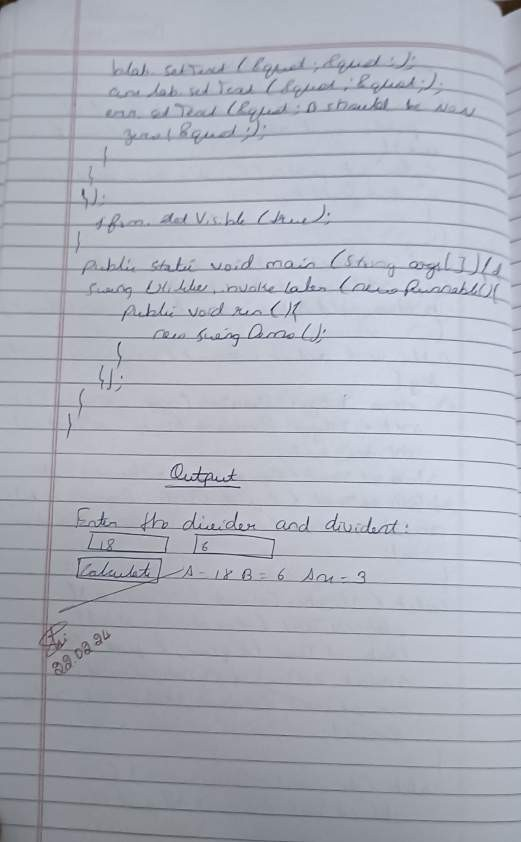 blab. setText (&quot; &quot;);
ans lab set Text (&quot; &quot;);
err. setText (&quot; B should be NON
zero &quot;);
}
}
});
jfrm. set Visible (true);
}
Public static void main (String args[]){
Swing Utilities, invoke later (new Runnable(){
Public void run (){
new Swing Demo ();
}
});
}
}
Output
Enter the divider and divident:
18 6
Calculate A = 18 B = 6 Ans = 3
22.02.24